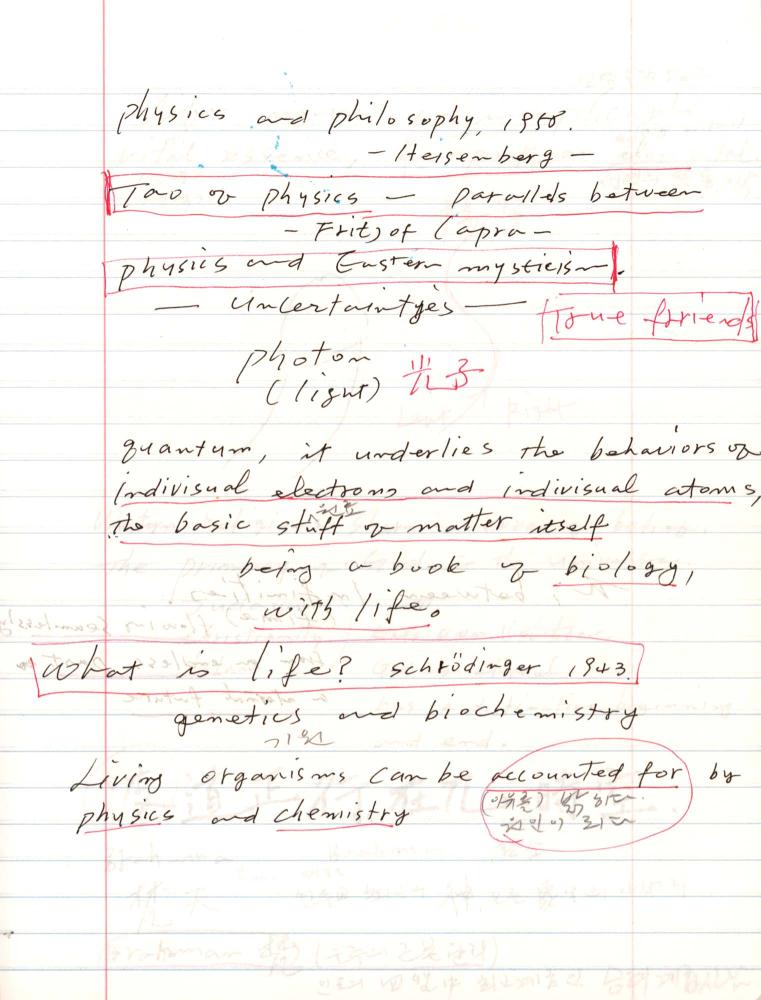 physics and philosophy, 1958.
- Heisenberg -
Tao of physics - parallels between
- Fritjof Capra -
physics and Eastern mysticism.
- uncertaintyes -
True friends
photon 光子
(light)
quantum, it underlies the behaviors of
indivisual electrons and indivisual atoms,
원료
the basic stuff of matter itself
being a book of biology,
with life.
What is life? schrödinger 1943.
genetics and biochemistry
기원
Living organisms can be accounted for by
(이유를) 밝히다.
physics and chemistry
원인이 되다